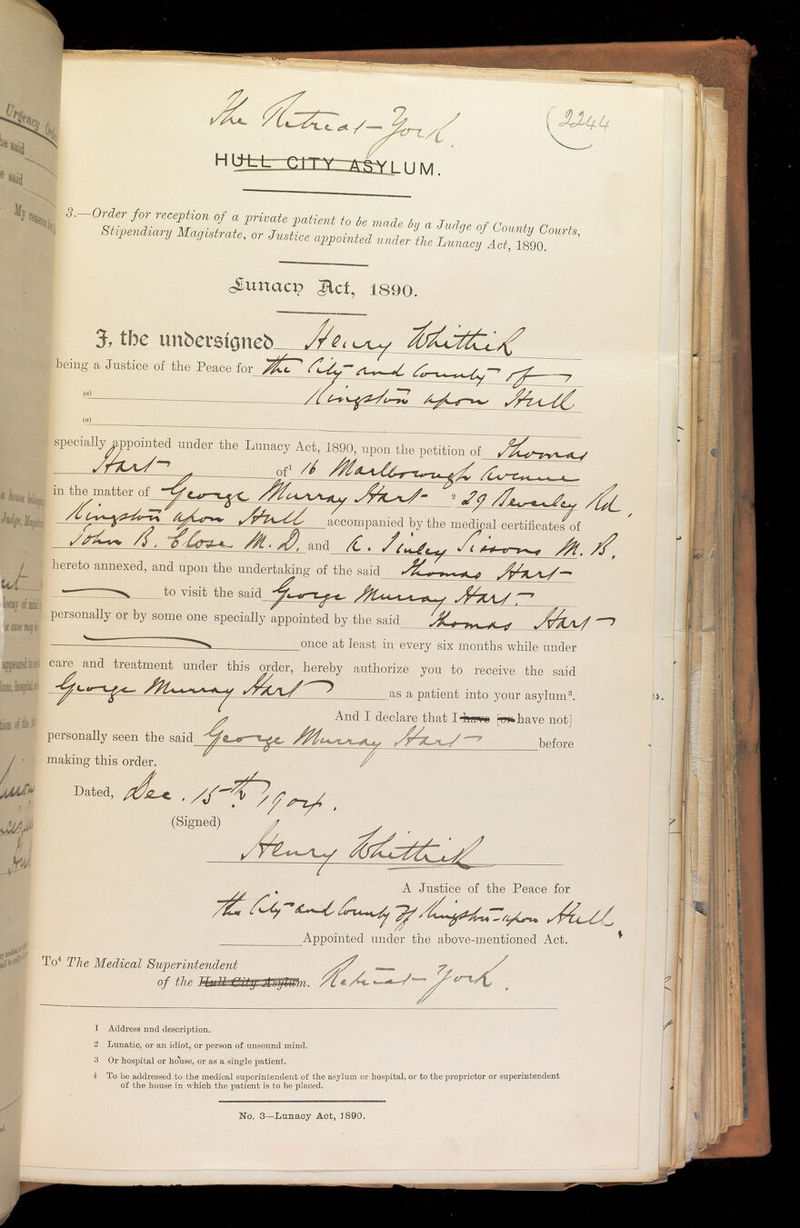 The Retreat - York
2244
HULL CITY ASYLUM.
3.—Order for reception of a private patient to be made by a Judge of County Courts,
Stipendiary Magistrate, or Justice appointed under the Lunacy Act, 1890.
Lunacy Act, 1890.
I, the undersigned Henry Whittick
being a Justice of the Peace for The City and County of
(a) Kingston upon Hull
(a)
specially appointed under the Lunacy Act, 1890, upon the petition of Thomas
Hart of1 16 Marlborough Avenue
in the matter of George Murray Hart 2 29 Beverley Rd,
Kingston upon Hull accompanied by the medical certificates of
John B. Close M.D. and E. Tinley Sissons M.B.
hereto annexed, and upon the undertaking of the said Thomas Hart
to visit the said George Murray Hart
personally or by some one specially appointed by the said Thomas Hart
once at least in every six months while under
care and treatment under this order, hereby authorize you to receive the said
George Murray Hart as a patient into your asylum3.
And I declare that I have [or have not]
personally seen the said George Murray Hart before
making this order.
Dated, Dec. 15th 1904.
(Signed)
Henry Whittick
A Justice of the Peace for
the City and County of Kingston-upon Hull
Appointed under the above-mentioned Act.
To4 The Medical Superintendent
of the Hull City Asylum. Retreat York.
1 Address nnd description.
2 Lunatic, or an idiot, or person of unsound mind.
3 Or hospital or house, or as a single patient.
4 To be addressed to the medical superintendent of the asylum or hospital, or to the proprietor or superintendent
of the house in which the patient is to be placed.
No. 3—Lunacy Act, 1890.